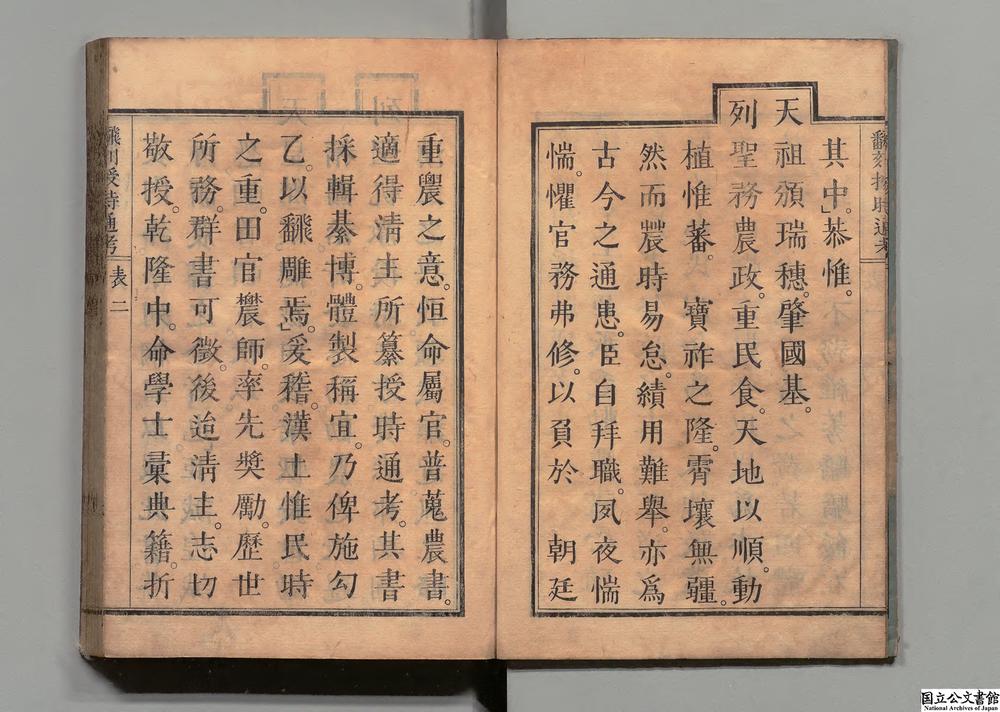 其中」恭惟。
天祖頒瑞穗。肇國基。
列聖務農政。重民食。天地以順。動
植惟蕃。 寶祚之隆。霄壤無疆。
然而農時易怠。績用難舉。亦爲
古今之通患。臣自拜職。夙夜惴
惴。懼官務弗修。以負於 朝廷
重農之意。恒命屬官。普蒐農書。
適得淸主所纂授時通考。其書
採輯綦博。體製稱宜。乃俾施勾
乙。以飜雕焉」爰稽。漢土惟民時
之重。田官農師。率先奬勵。歷世
所務。群書可徵。後迨淸主。志切
敬授。乾隆中。命學士彙典籍。折
表二
国立公文書館
National Archives of Japan